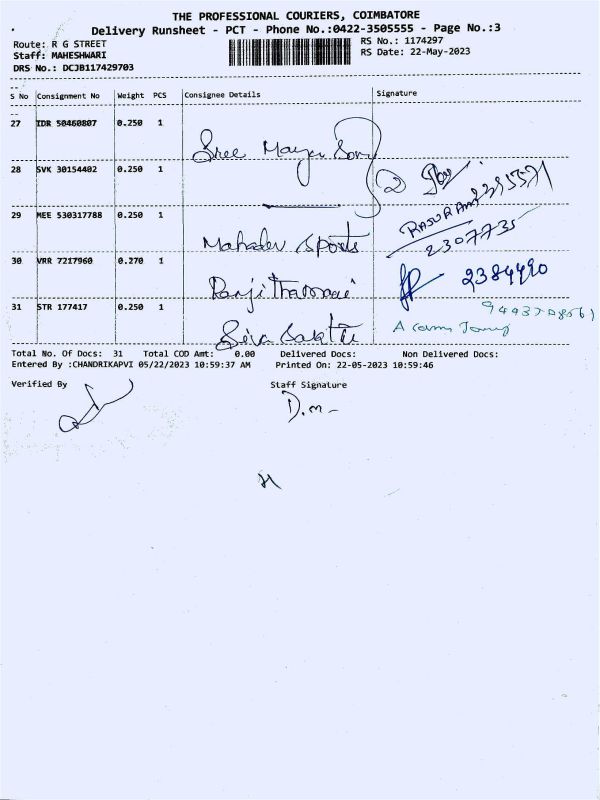 THE PROFESSIONAL COURIERS, COIMBATORE
Delivery Runsheet - PCT - Phone No.:0422-3505555 - Page No.:3
Route: R G STREET
Staff: MAHESHWARI
DRS No.: DCJB117429703
RS No.: 1174297
RS Date: 22-May-2023
S No Consignment No Weight PCS Consignee Details Signature
27 IDR 50460807 0.250 1
Sree
28 SVK 30154402 0.250 1
29 MEE 530317788 0.250 1
Mahadev Sports
2307735
30 VRR 7217960 0.270 1
2384490
31 STR 177417 0.250 1
Siva Sakthi
Total No. Of Docs: 31 Total COD Amt: 0.00 Delivered Docs: Non Delivered Docs:
Entered By :CHANDRIKAPVI 05/22/2023 10:59:37 AM Printed On: 22-05-2023 10:59:46
Verified By Staff Signature
D.m-